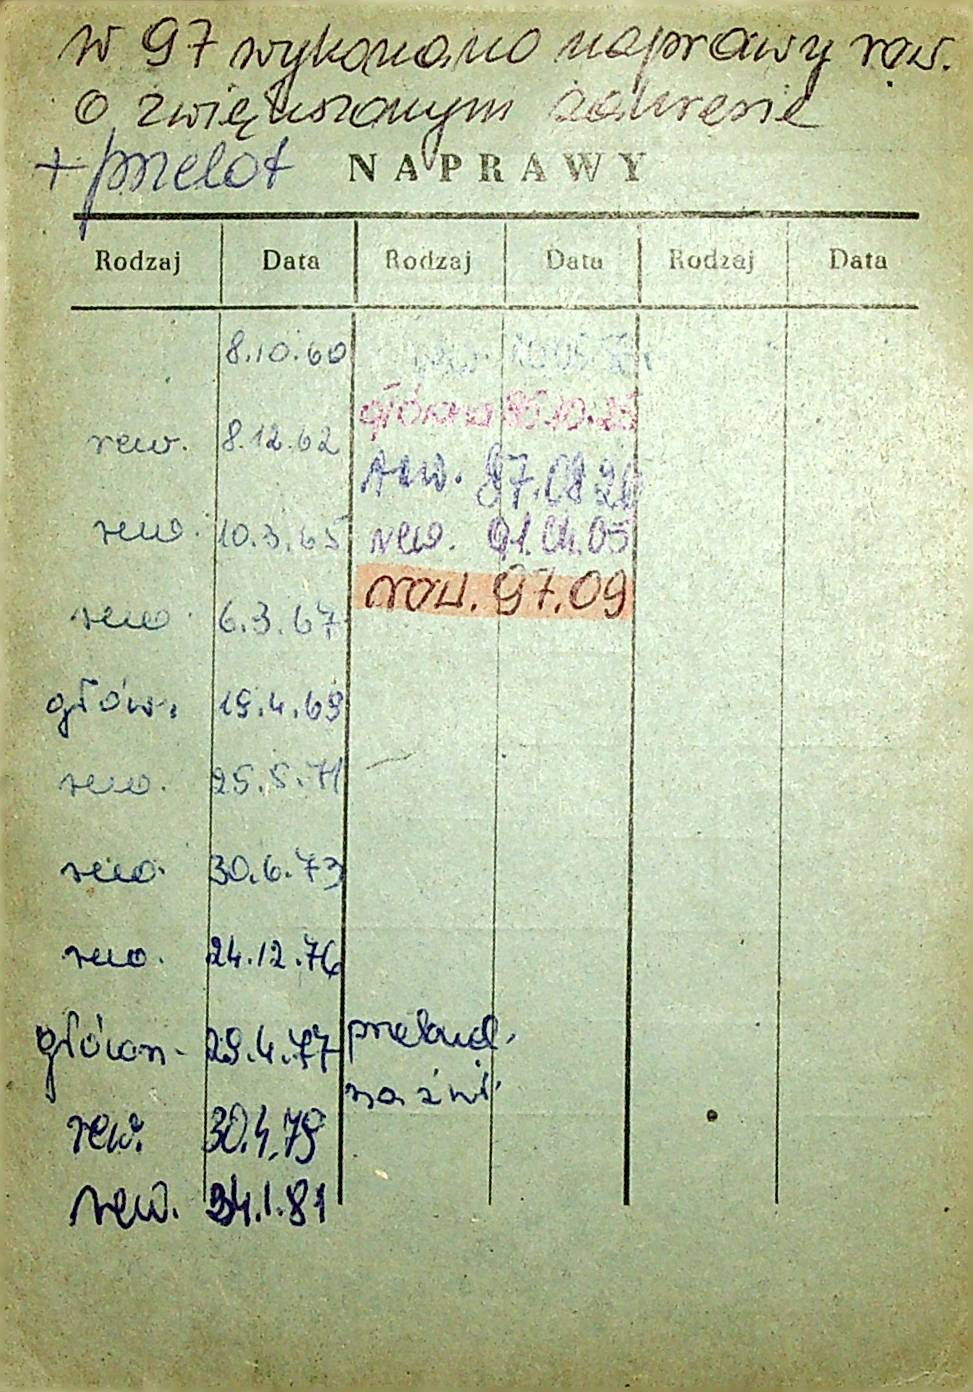 W 97 wykonano naprawy rew.
o zwiększonym zakresie
+ przelot
NAPRAWY
Rodzaj Data Rodzaj Data Rodzaj Data
8.10.60 rew.
główna 85.10.25
rew. 8.12.62
rew. 87.08
rew. 10.3.65 rew. 91.04.05
rew. 97.09
rew. 6.3.67
głów. 19.4.69
rew. 25.5.71
rew. 30.6.73
rew. 24.12.76
główn. 29.4.77 przebud.
na
rew. 30.4.79
rew. 1.81